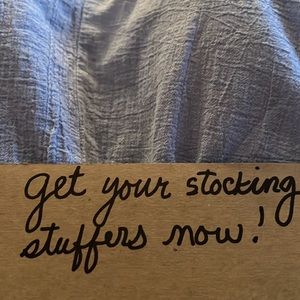 get your stocking
stuffers now!